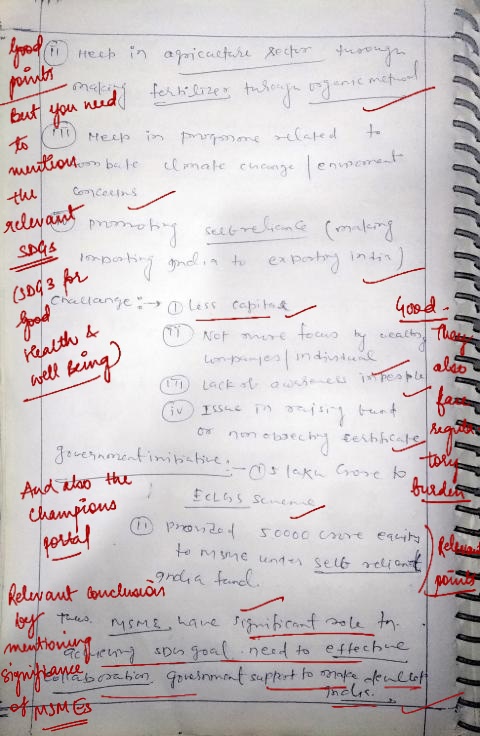 (ii) Help in agriculture sector through
making fertilizer through organic method
(iii) Help in programe related to
combate climate change / enviroment
concerns
promoting self reliance (making
importing India to exporting India)
Challange :→ (i) Less capital
(ii) Not more focus by wealthy
companies / individual
(iii) Lack of awareness in people
(iv) Issue in raising fund
or non objecting certificate
government initiative :- (i) 3 lakh crore to
ECLGS scheme
(ii) provized 50000 crore equity
to MSME under self reliant
India fund.
thus MSME have significant role for
achieving SDG goal. need to effective
collaboration government support to make develop
India.
Good
points
But you need
to
mention
the
relevant
SDGs
(SDG3 for
Good
Health &
Well Being)
And also the
Champions
portal
Relevant conclusion
by
mentioning
significance
of MSMEs
Good.
They
also
face
regula
tory
burden
Relevant
points